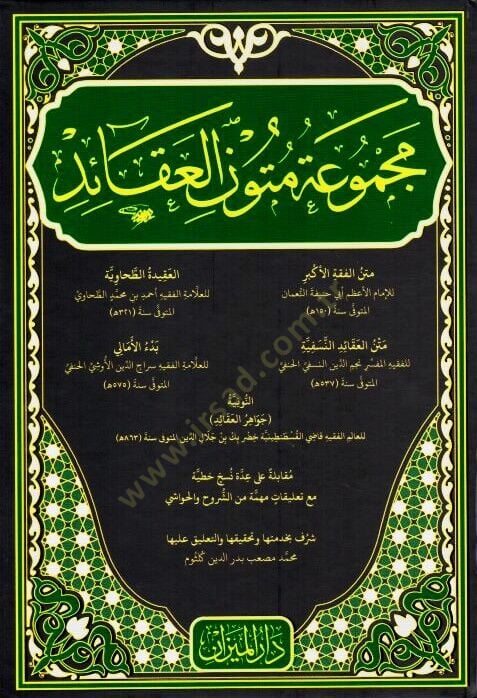 مَجْمُوعَةُ مُتُونِ العَقَائِدِ
متن الفقه الأكبر
للإمام الأعظم أبي حنيفة النعمان
المتوفى سنة (١٥٠هـ)
العَقيدةُ الطَّحاويَّة
للعلّامة الفقيه أحمد بن محمد الطحاوي
المتوفى سنة (٣٢١هـ)
مَتنُ العقائد النَّسفيّة
للفقيه المفسّر نجم الدين النسفي الحنفي
المتوفى سنة (٥٣٧هـ)
بَدْءُ الأَمَالي
للعلّامة الفقيه سراج الدين الأوشي الحنفي
المتوفى سنة (٥٧٥هـ)
النُّونيَّة
(جَوَاهِرُ العَقَائِدِ)
للعالم الفقيه قاضي القُسْطَنطِينيّة خِضر بك بن جلال الدين المتوفى سنة (٨٦٣هـ)
مُقابلةً على عِدّة نُسَخٍ خطيَّة
مع تعليقاتٍ مهمّة من الشُّروح والحواشي
شرُف بخدمتها وتحقيقها والتعليق عليها
محمّد مصعب بدر الدين كلثوم
دَارُ المِيزَانِ
www.irsad.com.tr